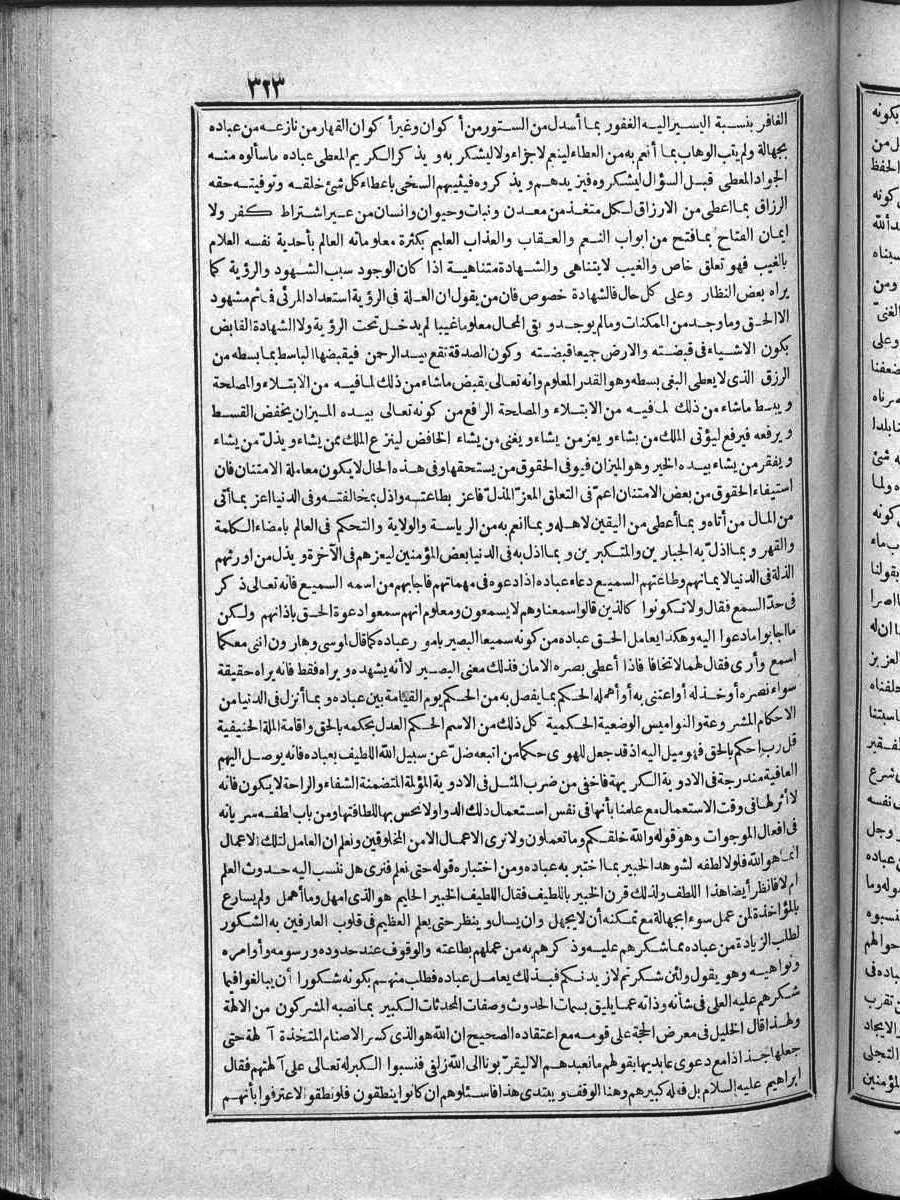 ٣٢٣
الغافر بنسبة اليسير اليه الغفور بما أسدل من الستور من أكوان وغير أكوان القهار من نازعه من عباده
بجهالة ولم يتب الوهاب بما أنعم به من العطاء لينعم لا جزاء ولا ليشكر به ويذكر الكريم المعطى عباده ما سألوه منه
الجواد المعطى قبل السؤال ليشكروه فيزيدهم ويذكروه فيثيبهم السخى باعطاء كل شئ خلقه وتوفيته حقه
الرزاق بما اعطى من الارزاق لكل متغذ من معدن ونبات وحيوان وانسان من غير اشتراط كفر ولا
ايمان الفتاح بما فتح من ابواب النعم والعقاب والعذاب العليم بكثرة معلوماته العالم بأحدية نفسه العلام
بالغيب فهو تعلق خاص والغيب لا يتناهى والشهادة متناهية اذا كان الوجود سبب الشهود والرؤية كما
يراه بعض النظار وعلى كل حال فالشهادة خصوص فان من يقول ان العلة فى الرؤية استعداد المرئى فما ثم مشهود
الا الحق وما وجد من الممكنات وما لم يوجد وبقى المحال معلوما غيبا لم يدخل تحت الرؤية ولا الشهادة القابض
بكون الاشياء فى قبضته والارض جميعا قبضته وكون الصدقة تقع بيد الرحمن فيقبضها الباسط بما بسطه من
الرزق الذى لا يعطى البغى بسطه وهو القدر المعلوم وانه تعالى يقبض ماشاء من ذلك لما فيه من الابتلاء والمصلحة
ويبسط ماشاء من ذلك لما فيه من الابتلاء والمصلحة الرافع من كونه تعالى بيده الميزان يخفض القسط
ويرفعه فيرفع ليؤتى الملك من يشاء ويعز من يشاء ويغنى من يشاء الخافض لينزع الملك ممن يشاء ويذل من يشاء
ويفقر من يشاء بيده الخير وهو الميزان فيوفى الحقوق من يستحقها وفى هذه الحال لا يكون معاملة الامتنان فان
استيفاء الحقوق من بعض الامتنان اعم فى التعلق المعز المذل فاعز بطاعته واذل بمخالفته وفى الدنيا اعز بما آتى
من المال من أتاه وبما أعطى من اليقين لاهله وبما انعم به من الرياسة والولاية والتحكم فى العالم بامضاء الكلمة
والقهر وبما اذل به الجبارين والمتكبرين وبما اذل به فى الدنيا بعض المؤمنين ليعزهم فى الآخرة ويذل من اورثهم
الذلة فى الدنيا لايمانهم وطاعتهم السميع دعاء عباده اذا دعوه فى مهماتهم فاجابهم من اسمه السميع فانه تعالى ذكر
فى حد السمع فقال ولا تكونوا كالذين قالوا سمعنا وهم لا يسمعون ومعلوم انهم سمعوا دعوة الحق باذانهم ولكن
ما اجابوا ما دعوا اليه وهكذا يعامل الحق عباده من كونه سميعا البصير بامور عباده كما قال لموسى وهارون اننى معكما
اسمع وأرى فقال لهما لا تخافا فاذا أعطى بصره الامان فذلك معنى البصير لا أنه يشهده ويراه فقط فانه يراه حقيقة
سواء نصره أو خذله أو اعتنى به أو أهمله الحكم بما يفصل به من الحكم يوم القيامة بين عباده وبما أنزل فى الدنيا من
الاحكام المشروعة والنواميس الوضعية الحكمية كل ذلك من الاسم الحكم العدل بحكمه بالحق واقامة الملة الحنيفية
قل رب احكم بالحق فهو ميل اليه اذ قد جعل للهوى حكما من اتبعه ضل عن سبيل الله اللطيف بعباده فانه يوصل اليهم
العافية مندرجة فى الادوية الكريهة فاخفى من ضرب المثل فى الادوية المؤلمة المتضمنة الشفاء والراحة لا يكون فانه
لا أثر لها فى وقت الاستعمال مع علمنا بأنها فى نفس استعمال ذلك الدواء ولا نحس بها للطافتها ومن باب لطفه سريانه
فى افعال الموجودات وهو قوله والله خلقكم وما تعملون ولا نرى الاعمال الا من المخلوقين ونعلم ان العامل لتلك الاعمال
انما هو الله فلولا لطفه لشوهد الخبير بما اختبر به عباده ومن اختباره قوله حتى نعلم فنرى هل ننسب اليه حدوث العلم
ام لا فانظر أيضا هذا اللطف ولذلك قرن الخبير باللطيف فقال اللطيف الخبير الحليم هو الذى امهل وما أهمل ولم يسارع
بالمؤاخذة لمن عمل سوءا بجهالة مع تمكنه أن لا يجهل وان يسأل وينظر حتى يعلم العظيم فى قلوب العارفين به الشكور
لطلب الزيادة من عباده مما شكرهم عليه وذكرهم به من عملهم بطاعته والوقوف عند حدوده ورسومه وأوامره
ونواهيه وهو يقول ولئن شكرتم لازيدنكم فبذلك يعامل عباده فطلب منهم بكونه شكورا أن يبالغوا فيما
شكرهم عليه العلى فى شأنه وذاته عما يليق بسمات الحدوث وصفات المحدثات الكبير بما نصبه المشركون من الآلهة
ولهذا قال الخليل فى معرض الحجة على قومه مع اعتقاده الصحيح ان الله هو الذى كسر الاصنام المتخذة آلهة حتى
جعلها جذاذا مع دعوى عابديها بقولهم ما نعبدهم الا ليقربونا الى الله زلفى فنسبوا الكبر له تعالى على آلهتهم فقال
ابراهيم عليه السلام بل فعله كبيرهم وهنا الوقف ويبتدى هذا فاسئلوهم ان كانوا ينطقون فلو نطقوا لاعترفوا بأنهم